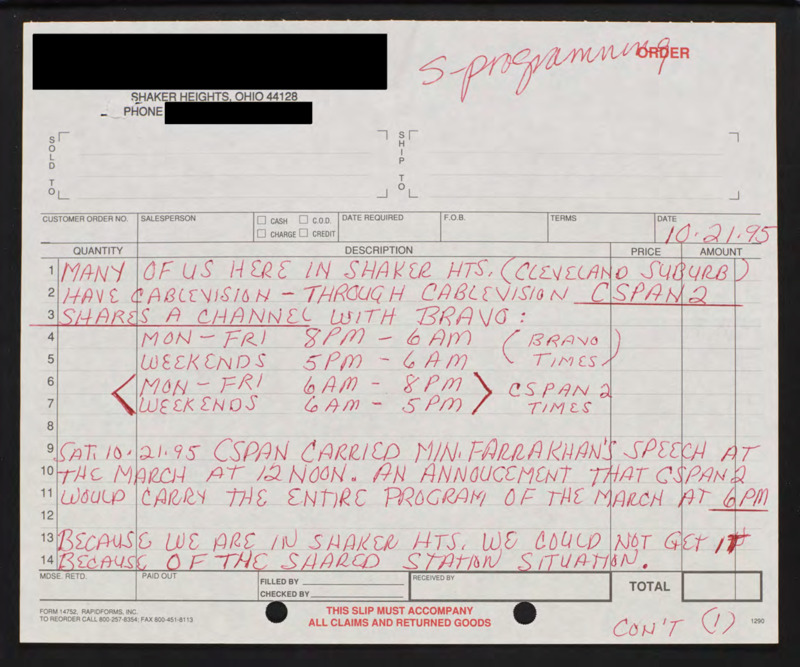 S-programming
ORDER
SHAKER HEIGHTS, OHIO 44128
PHONE
SOLD TO
SHIP TO
CUSTOMER ORDER NO. SALESPERSON CASH C.O.D. DATE REQUIRED F.O.B. TERMS DATE
CHARGE CREDIT 10.21.95
QUANTITY DESCRIPTION PRICE AMOUNT
1 MANY OF US HERE IN SHAKER HTS. (CLEVELAND SUBURB)
2 HAVE CABLEVISION - THROUGH CABLEVISION CSPAN 2
3 SHARES A CHANNEL WITH BRAVO:
4 MON - FRI 8PM - 6AM (BRAVO
5 WEEKENDS 5PM - 6AM TIMES)
6 < MON - FRI 6AM - 8PM > CSPAN 2
7 WEEKENDS 6AM - 5PM TIMES
8
9 SAT. 10.21.95 CSPAN CARRIED MIN. FARRAKHAN'S SPEECH AT
10 THE MARCH AT 12 NOON. AN ANNOUCEMENT THAT CSPAN 2
11 WOULD CARRY THE ENTIRE PROGRAM OF THE MARCH AT 6PM
12
13 BECAUSE WE ARE IN SHAKER HTS. WE COULD NOT GET IT
14 BECAUSE OF THE SHARED STATION SITUATION.
MDSE. RETD. PAID OUT FILLED BY RECEIVED BY TOTAL
CHECKED BY
FORM 14752, RAPIDFORMS, INC.
TO REORDER CALL 800-257-8354; FAX 800-451-8113
THIS SLIP MUST ACCOMPANY
ALL CLAIMS AND RETURNED GOODS
CON'T (1) 1290